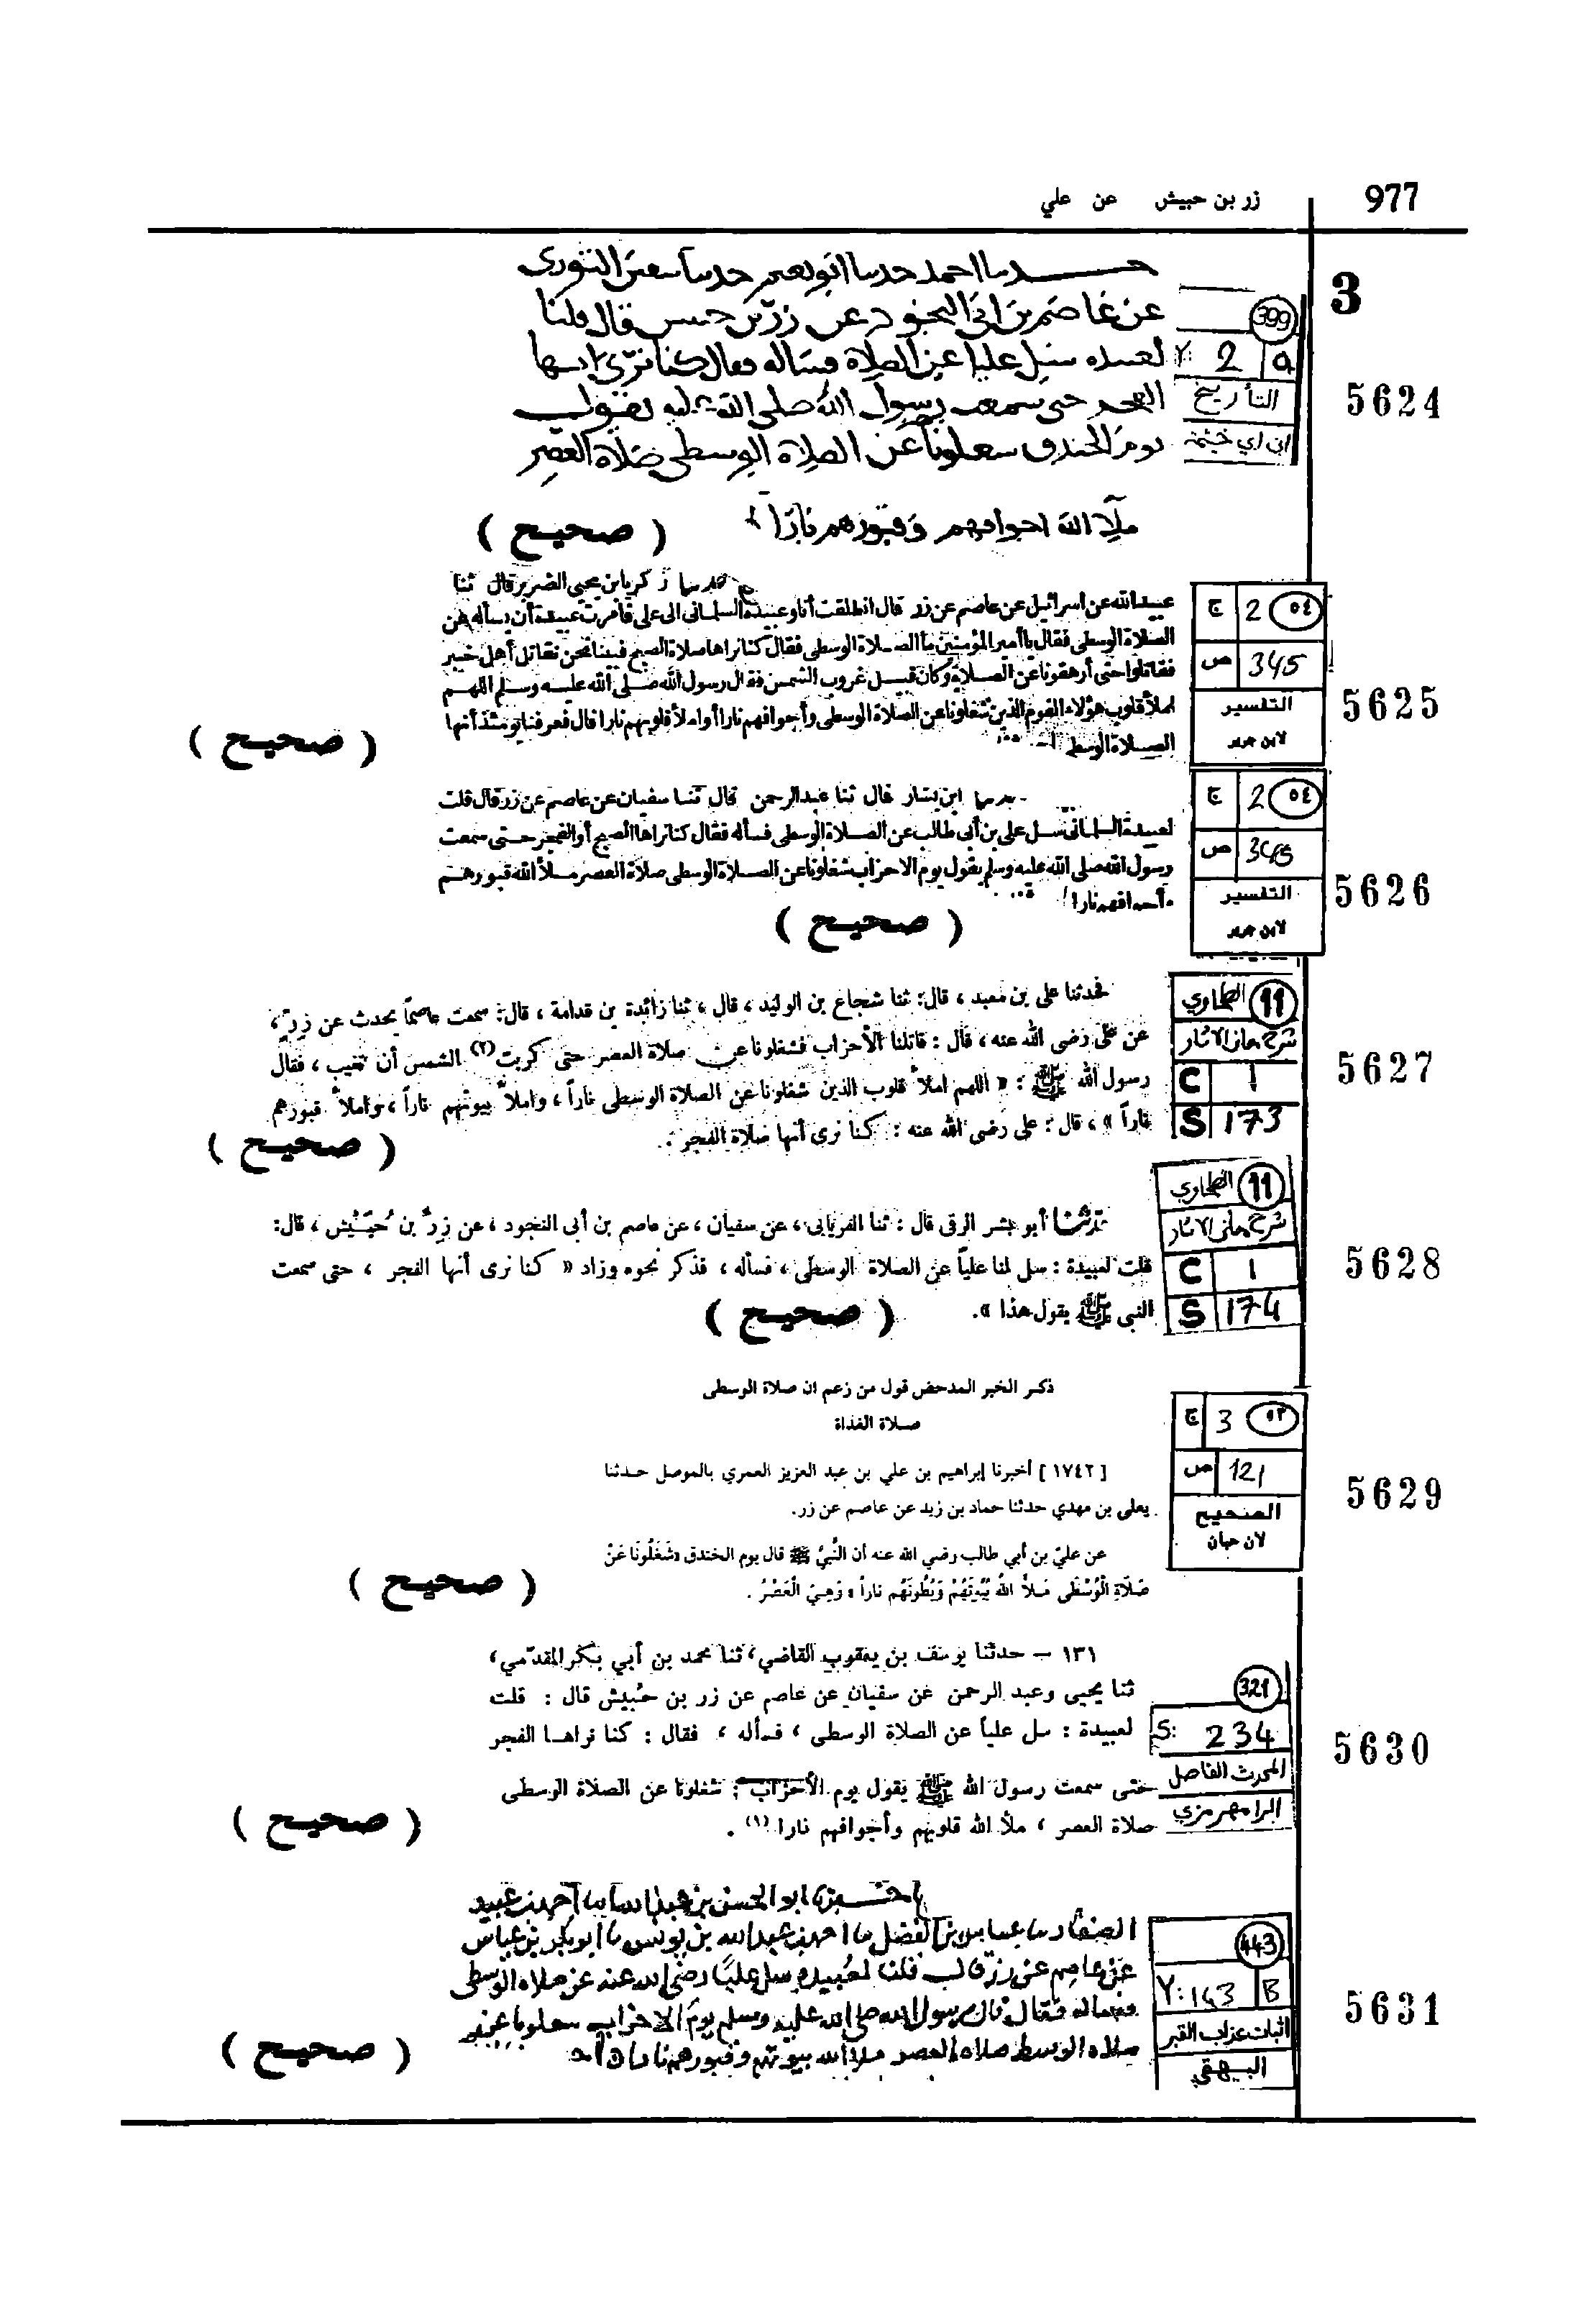 977
زر بن حبيش عن علي
3
حدثنا احمد حدثنا ابو نعيم حدثنا سفين الثوري
عن عاصم بن ابي النجود عن زر بن حبيش قال قلنا
لعبيده سئل عليا عن الصلاة فسأله فقال كنا نرى انها
الفجر حتى سمعت رسول الله صلى الله عليه يقول
يوم الخندق شغلونا عن الصلاة الوسطى صلاة العصر
ملا الله اجوافهم وقبورهم نارا
( صحيح )
399
Y: 2 a
التأريخ
ابن ابي خيثمة
5624
حدثنا زكريا بن يحيى الضرير قال ثنا
عبيد الله عن اسرائيل عن عاصم عن زر قال انطلقت أنا وعبيدة السلماني الى علي فأمرت عبيدة أن يسأله عن
الصلاة الوسطى فقال يا أمير المؤمنين ما الصلاة الوسطى فقال كنا نراها صلاة الصبح فبينا نحن نقاتل أهل خيبر
فقاتلوا حتى أرهقونا عن الصلاة وكان قبيل غروب الشمس فقال رسول الله صلى الله عليه وسلم اللهم
املأ قلوب هؤلاء القوم الذين شغلونا عن الصلاة الوسطى وأجوافهم نارا أو املأ قلوبهم نارا قال فعرفنا يومئذ أنها
الصلاة الوسطى
( صحيح )
٥٤ 2 ج
345 ص
التفسير
لابن جرير
5625
حدثنا ابن بشار قال ثنا عبد الرحمن قال ثنا سفيان عن عاصم عن زر قال قلت
لعبيدة السلماني سل علي بن أبي طالب عن الصلاة الوسطى فسأله فقال كنا نراها الصبح أو الفجر حتى سمعت
رسول الله صلى الله عليه وسلم يقول يوم الاحزاب شغلونا عن الصلاة الوسطى صلاة العصر ملأ الله قبورهم
وأجوافهم نارا
( صحيح )
٥٤ 2 ج
345 ص
التفسير
لابن جرير
5626
فحدثنا على بن معبد ، قال: ثنا شجاع بن الوليد ، قال ، ثنا زائدة بن قدامة ، قال: سمعت عاصماً يحدث عن زِرٍّ ،
عن علىّ رضى الله عنه ، قال : قاتلنا الأحزاب فشغلونا عن صلاة العصر حتى كربت(٢) الشمس أن تغيب ، فقال
رسول الله ﷺ : « اللهم املأ قلوب الذين شغلونا عن الصلاة الوسطى ناراً ، واملأ بيوتهم ناراً ، واملأ قبورهم
ناراً » ، قال : على رضى الله عنه : كنا نرى أنها صلاة الفجر .
( صحيح )
11 الطحاوي
شرح معاني الاثار
C 1
S 173
5627
حدثنا أبو بشر الرقى قال : ثنا الفريابى ، عن سفيان ، عن عاصم بن أبى النجود ، عن زِرِّ بن حُبَيْش ، قال:
قلت لعبيدة : سل لنا علياً عن الصلاة الوسطى ، فسأله ، فذكر نحوه وزاد « كنا نرى أنها الفجر ، حتى سمعت
النبى ﷺ يقول هذا ».
( صحيح )
11 الطحاوي
شرح معاني الاثار
C 1
S 174
5628
ذكر الخبر المدحض قول من زعم ان صلاة الوسطى
صلاة الغداة
[ ١٧٤٢ ] أخبرنا إبراهيم بن علي بن عبد العزيز العمري بالموصل حدثنا
يعلى بن مهدي حدثنا حماد بن زيد عن عاصم عن زر.
عن عليّ بن أبي طالب رضي الله عنه أن النَّبيَّ ﷺ قال يوم الخندق «شَغَلُونَا عَنْ
صَلَاةِ الْوُسْطَى مَلَأَ اللهُ بُيُوتَهُمْ وَبُطُونَهُمْ ناراً» وَهِيَ الْعَصْرُ .
( صحيح )
٥٣ 3 ج
121 ص
الصحيح
لابن حبان
5629
١٣١ – حدثنا يوسف بن يعقوب القاضي، ثنا محمد بن أبي بكر المقدّمي،
ثنا يحيى وعبد الرحمن عن سفيان عن عاصم عن زر بن حُبيش قال : قلت
لعبيدة : سل علياً عن الصلاة الوسطى ، فسأله ، فقال : كنا نراهـا الفجر
حتى سمعت رسول الله ﷺ يقول يوم الأحزاب : شغلونا عن الصلاة الوسطى
صلاة العصر ، ملأ الله قلوبهم وأجوافهم نارا (١) .
( صحيح )
321
S: 234
المحدث الفاصل
الرامهرمزي
5630
اخبرنا ابو الحسن بن عبدان انا احمد بن عبيد
الصفار نا عباس بن الفضل نا احمد بن عبدالله بن يونس نا ابو بكر بن عياش
عن عاصم عن زر قال قلت لعبيدة سل عليا رضي الله عنه عن صلاة الوسطى
فسأله فقال قال رسول الله صلى الله عليه وسلم يوم الاحزاب شغلونا عن
صلاه الوسطى صلاه العصر ملأ الله بيوتهم وقبورهم نارا
( صحيح )
443
Y: 143 B
اثبات عذاب القبر
البيهقي
5631